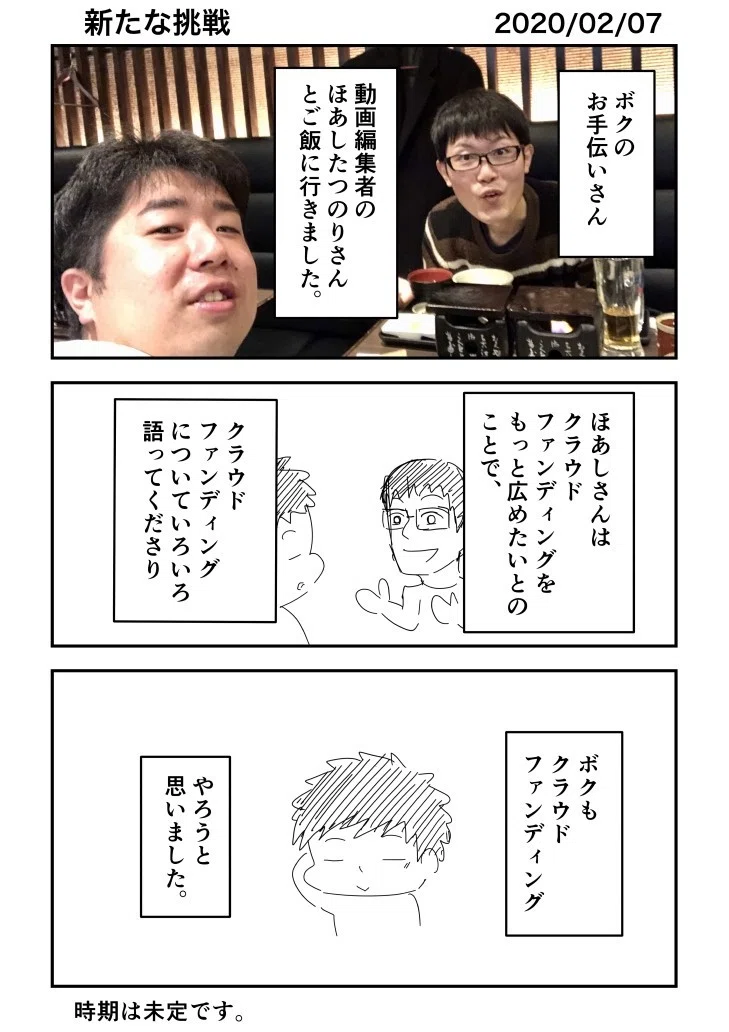 新たな挑戦
2020/02/07
ボクの
お手伝いさん
動画編集者の
ほあしたつのりさん
とご飯に行きました。
ほあしさんは
クラウド
ファンディングを
もっと広めたいとの
ことで、
クラウド
ファンディング
についていろいろ
語ってくださり
ボクも
クラウド
ファンディング
やろうと
思いました。
時期は未定です。